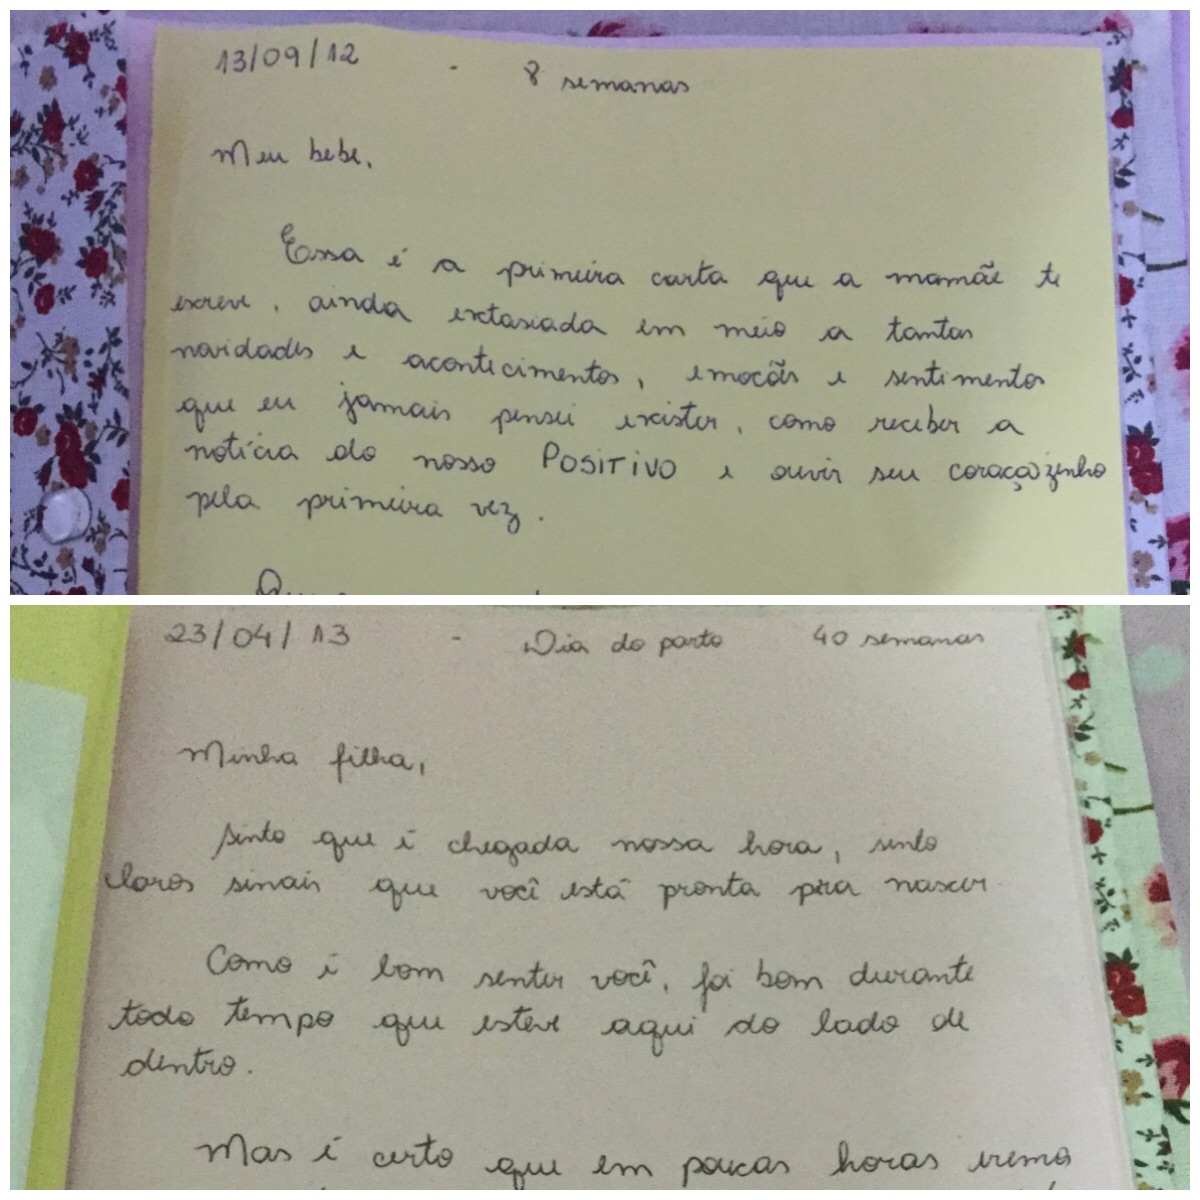 13/09/12 - 8 semanas
Meu bebe,
Essa é a primeira carta que a mamãe te
escreve, ainda extasiada em meio a tantas
novidades e acontecimentos, emocões e sentimentos
que eu jamais pensei existir, como receber a
notícia do nosso POSITIVO e ouvir seu coraçaozinho
pela primeira vez.
23/04/13 - Dia do parto 40 semanas
Minha filha,
Sinto que é chegada nossa hora, sinto
claros sinais que você está pronta pra nascer
Como é bom sentir você, foi bom durante
todo tempo que esteve aqui do lado de
dentro.
Mas é certo que em poucas horas iremos